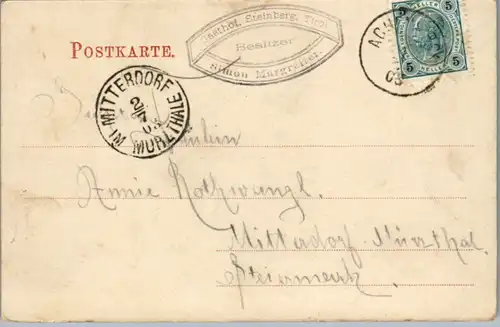 POSTKARTE.
Gasthof Steinberg, Tirol
Besitzer
Simon Margreiter.
5 HELLER 5
AC
03
MITTERDORF
2/7
03
IM MÜRZTHALE
Fräulein
Annie Rothwangl.
Mitterdorf. Mürzthal
Steiermark